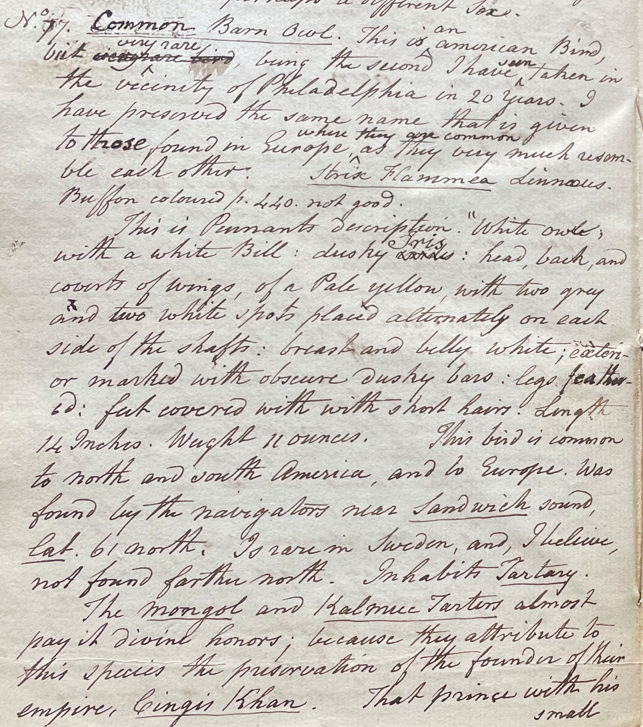 perhaps a different Sex.
No. 77. Common Barn Owl. This is an american Bird,
but very rare, being the second I have seen, taken in
the vicinity of Philadelphia in 20 Years. I
have preserved the same name that is given
to those, found in Europe, where they are common as they very much resem-
ble each other. Strix Flammea Linnaeus.
Buffon coloured p. 440. not good.
This is Pennants description. "White owl;
with a white Bill: dusky Iris: head, back, and
coverts of wings, of a Pale yellow, with two grey
and two white spots placed alternately on each
side of the shafts: breast and belly white; exteri-
or marked with obscure dusky bars: legs feather-
ed: feet covered with with short hairs: Length
14 Inches. Weight 11 ounces. This bird is common
to north and south America, and to Europe. Was
found by the navigators near Sandwich sound,
Lat. 61 north. Is rare in Sweden, and, I believe,
not found farther north. Inhabits Tartary.
The Mongol and Kalmuc Tarters almost
pay it divine honors; because they attribute to
this species the preservation of the founder of their
empire, Cingis Khan. That prince with his
small